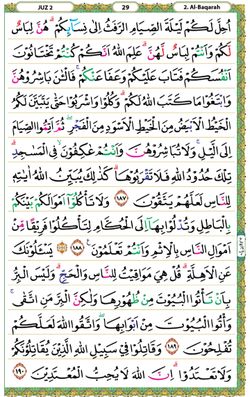 JUZ 2 29 2. Al-Baqarah
اُحِلَّ لَكُمْ لَيْلَةَ الصِّيَامِ الرَّفَثُ اِلٰى نِسَآئِكُمْ ؕ هُنَّ لِبَاسٌ
لَّكُمْ وَاَنْتُمْ لِبَاسٌ لَّهُنَّ ؕ عَلِمَ اللّٰهُ اَنَّكُمْ كُنْتُمْ تَخْتَانُوْنَ
اَنْفُسَكُمْ فَتَابَ عَلَيْكُمْ وَعَفَا عَنْكُمْ ۚ فَالْـٰٔنَ بَاشِرُوْهُنَّ
وَابْتَغُوْا مَا كَتَبَ اللّٰهُ لَكُمْ ۪ وَكُلُوْا وَاشْرَبُوْا حَتّٰى يَتَبَيَّنَ لَكُمُ
الْخَيْطُ الْاَبْيَضُ مِنَ الْخَيْطِ الْاَسْوَدِ مِنَ الْفَجْرِ ۪ ثُمَّ اَتِمُّوا الصِّيَامَ
اِلَى الَّيْلِ ۚ وَلَا تُبَاشِرُوْهُنَّ وَاَنْتُمْ عٰكِفُوْنَ ۙ فِى الْمَسٰجِدِ ؕ
تِلْكَ حُدُوْدُ اللّٰهِ فَلَا تَقْرَبُوْهَا ؕ كَذٰلِكَ يُبَيِّنُ اللّٰهُ اٰيٰتِهٖ
لِلنَّاسِ لَعَلَّهُمْ يَتَّقُوْنَ ﴿۱۸۷﴾ وَلَا تَاْكُلُوْٓا اَمْوَالَكُمْ بَيْنَكُمْ
بِالْبَاطِلِ وَتُدْلُوْا بِهَآ اِلَى الْحُكَّامِ لِتَاْكُلُوْا فَرِيْقًا مِّنْ
اَمْوَالِ النَّاسِ بِالْاِثْمِ وَاَنْتُمْ تَعْلَمُوْنَ ﴿۱۸۸﴾ يَسْـَٔلُوْنَكَ
عَنِ الْاَهِلَّةِ ؕ قُلْ هِىَ مَوَاقِيْتُ لِلنَّاسِ وَالْحَجِّ ؕ وَلَيْسَ الْبِرُّ
بِاَنْ تَاْتُوا الْبُيُوْتَ مِنْ ظُهُوْرِهَا وَلٰكِنَّ الْبِرَّ مَنِ اتَّقٰى ۚ
وَاْتُوا الْبُيُوْتَ مِنْ اَبْوَابِهَا ۪ وَاتَّقُوا اللّٰهَ لَعَلَّكُمْ
تُفْلِحُوْنَ ﴿۱۸۹﴾ وَقَاتِلُوْا فِىْ سَبِيْلِ اللّٰهِ الَّذِيْنَ يُقَاتِلُوْنَكُمْ
وَلَا تَعْتَدُوْا ؕ اِنَّ اللّٰهَ لَا يُحِبُّ الْمُعْتَدِيْنَ ﴿۱۹۰﴾